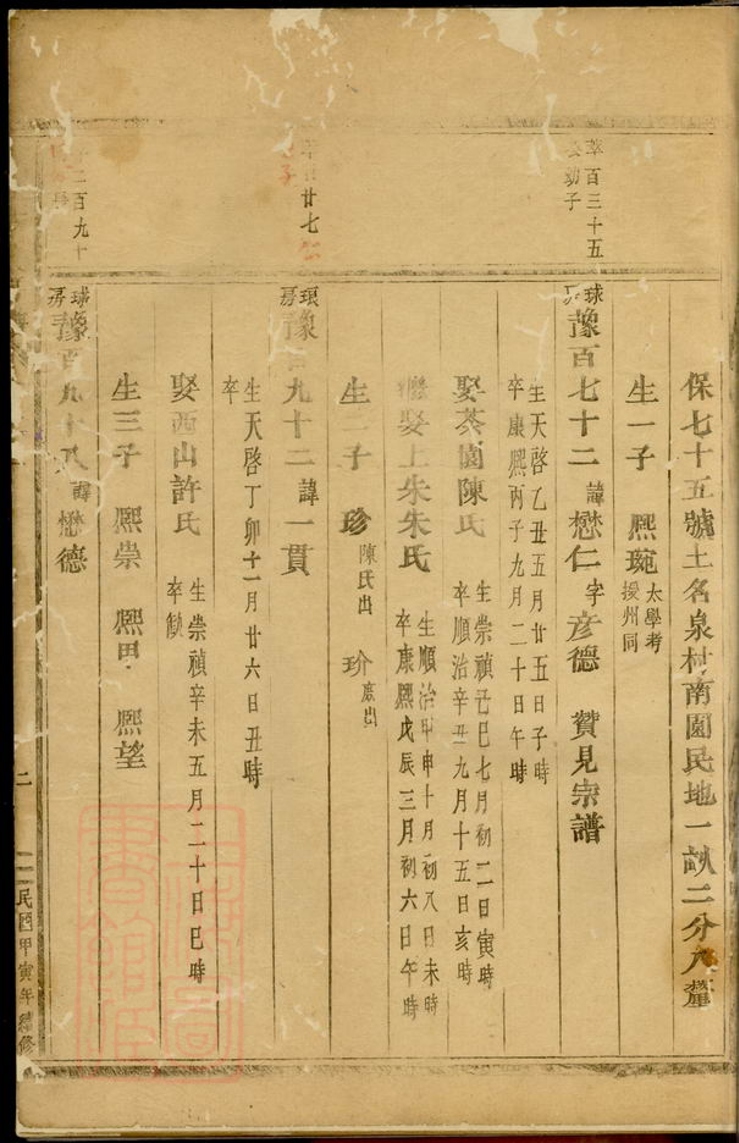 保七十五號土名泉村南園民地一畝二分八釐
生一子 熙琬 太學考
援州同
莘百三十五
公幼子
球
豫百七十二 諱懋仁 字彦德 贊見宗譜
生天啓乙丑五月廿五日子時
卒康熙丙子九月二十日午時
娶茶園陳氏 生崇禎己巳七月初二日寅時
卒順治辛丑九月十五日亥時
繼娶上朱朱氏 生順治甲申十月初八日未時
卒康熙戊辰三月初六日午時
生二子 珍 陳氏出 玠 庶出
廿七公
子
琅
房
豫百九十二 諱一貫
生天啓丁卯十一月廿六日丑時
卒
娶西山許氏 生崇禎辛未五月二十日巳時
卒缺
生三子 熙崇 熙甲 熙望
二百九十
球
房
豫百九十八 諱懋德
二
民國甲寅年續修